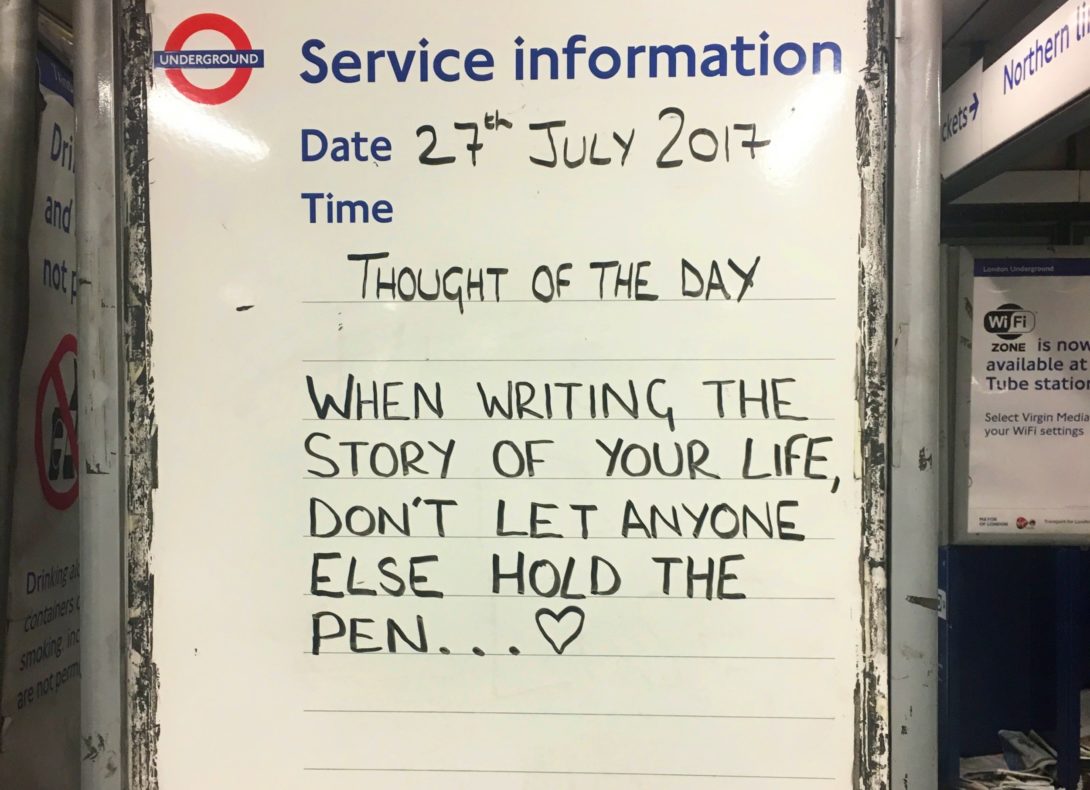 UNDERGROUND
Service information
Date 27th JULY 2017
Time
THOUGHT OF THE DAY
WHEN WRITING THE
STORY OF YOUR LIFE,
DON'T LET ANYONE
ELSE HOLD THE
PEN... ♡
and
not
Drinking
containers
smoking,
are not
Northern
London Underground
WiFi
ZONE is now
available at
Tube
Select Virgin Media
your WiFi settings
MAYOR
OF LONDON